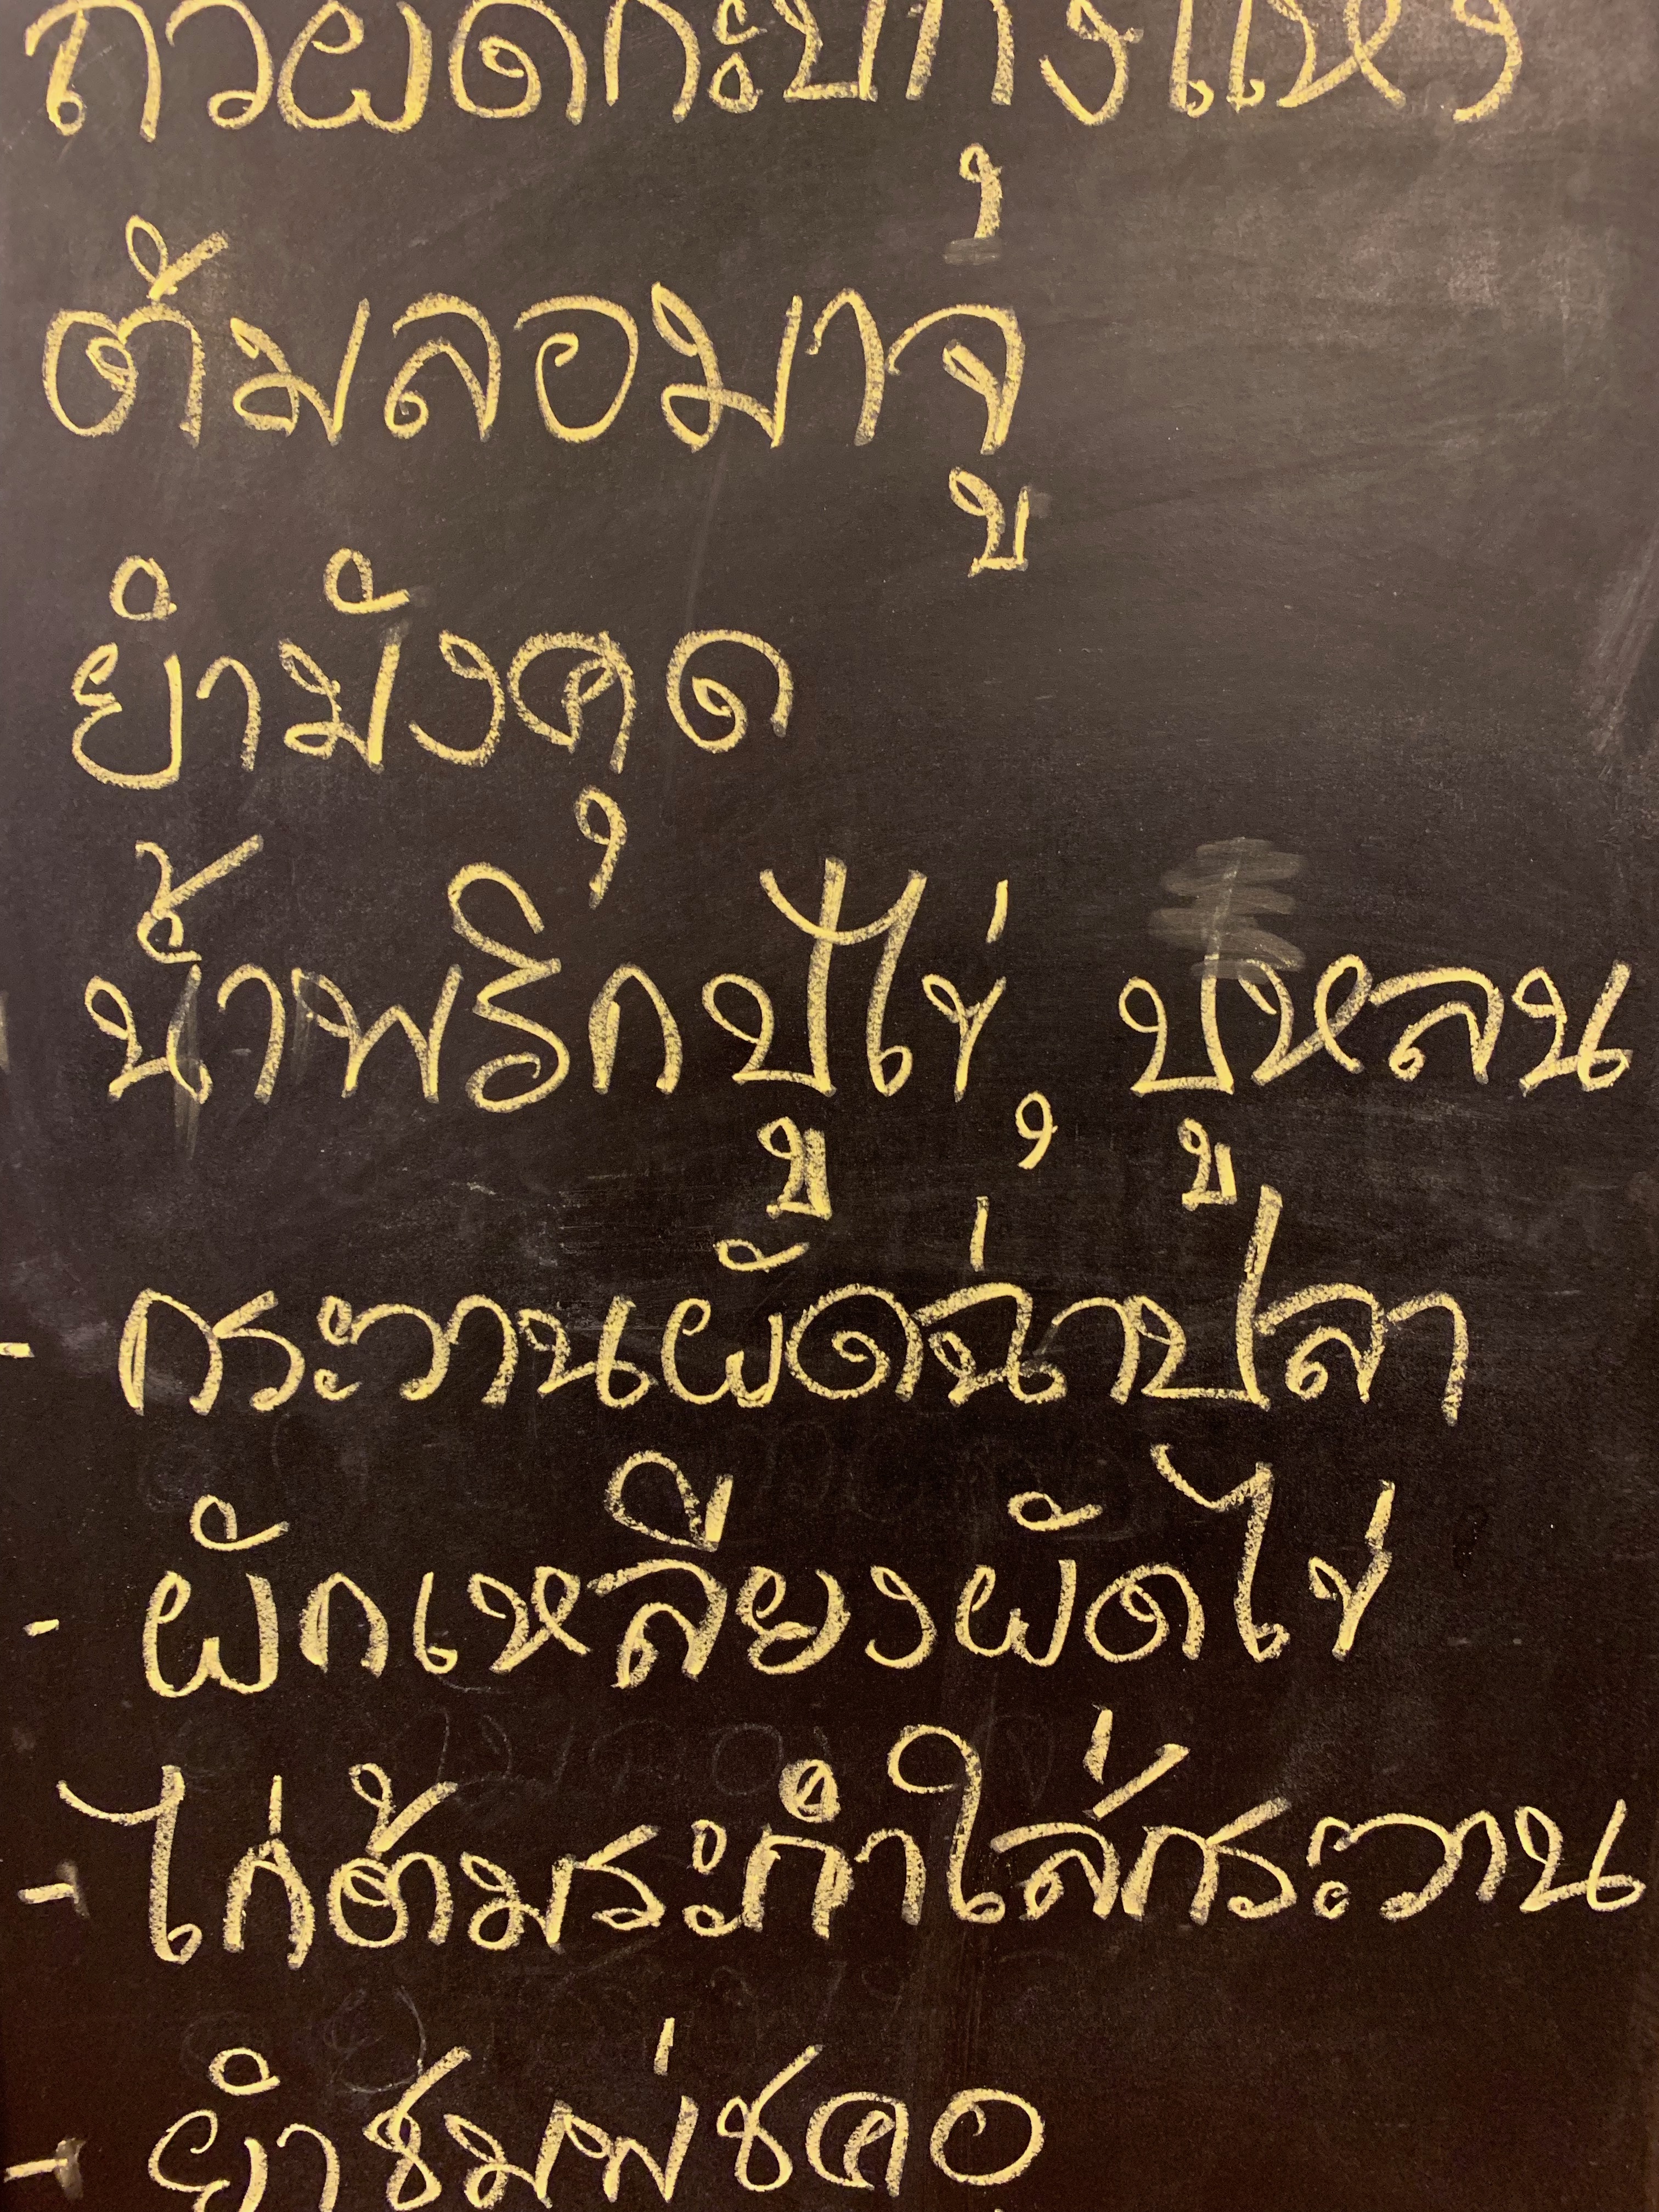 ถั่วผัดกะปิกุ้งแห้ง
ต้มลอมาจู
ยำมังคุด
น้ำพริกปูไข่, ปูหลน
- กระวานผัดฉ่าปลา
- ผักเหลียงผัดไข่
- ไก่ต้มระกำใส่กระวาน
- ยำชมพู่